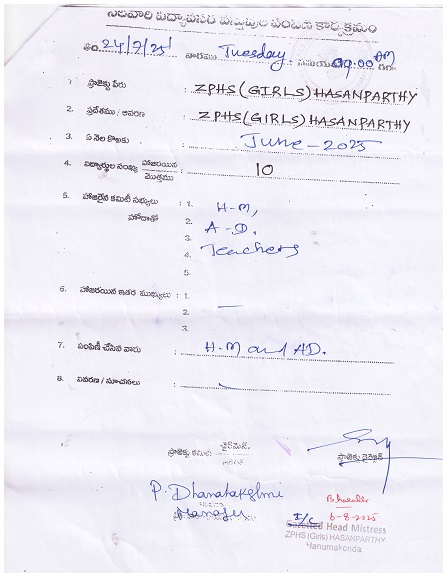 నిరివారి విద్యావసర వస్తువుల పంపిణి కార్యక్రమం
తేది 24/7/25 వారము Tuesday సమయం 09:00 AM గంట
1. ప్రాజెక్టు పేరు : ZPHS (GIRLS) HASANPARTHY
2. ప్రదేశము / ఆవరణ : ZPHS (GIRLS) HASANPARTHY
3. ఏ నెల కొఱకు : June - 2025
4. విద్యార్థుల సంఖ్య హాజరయిన / మొత్తము : 10
5. హాజరైన కమిటీ సభ్యులు : 1. H-M,
హోదాతో 2. A-D.
3. Teachers
4.
5.
6. హాజరయిన ఇతర ముఖ్యులు : 1.
2. —
3.
7. పంపిణీ చేసిన వారు : H-M and AD.
8. వివరణ / సూచనలు : —
ప్రాజెక్టు కమిటి ఛైర్మెన్. ప్రాజెక్టు డైరెక్టర్
P. Dhanalakshmi
I/c 6-8-2025
Gazetted Head Mistress
ZPHS (Girls) HASANPARTHY
Hanumakonda.